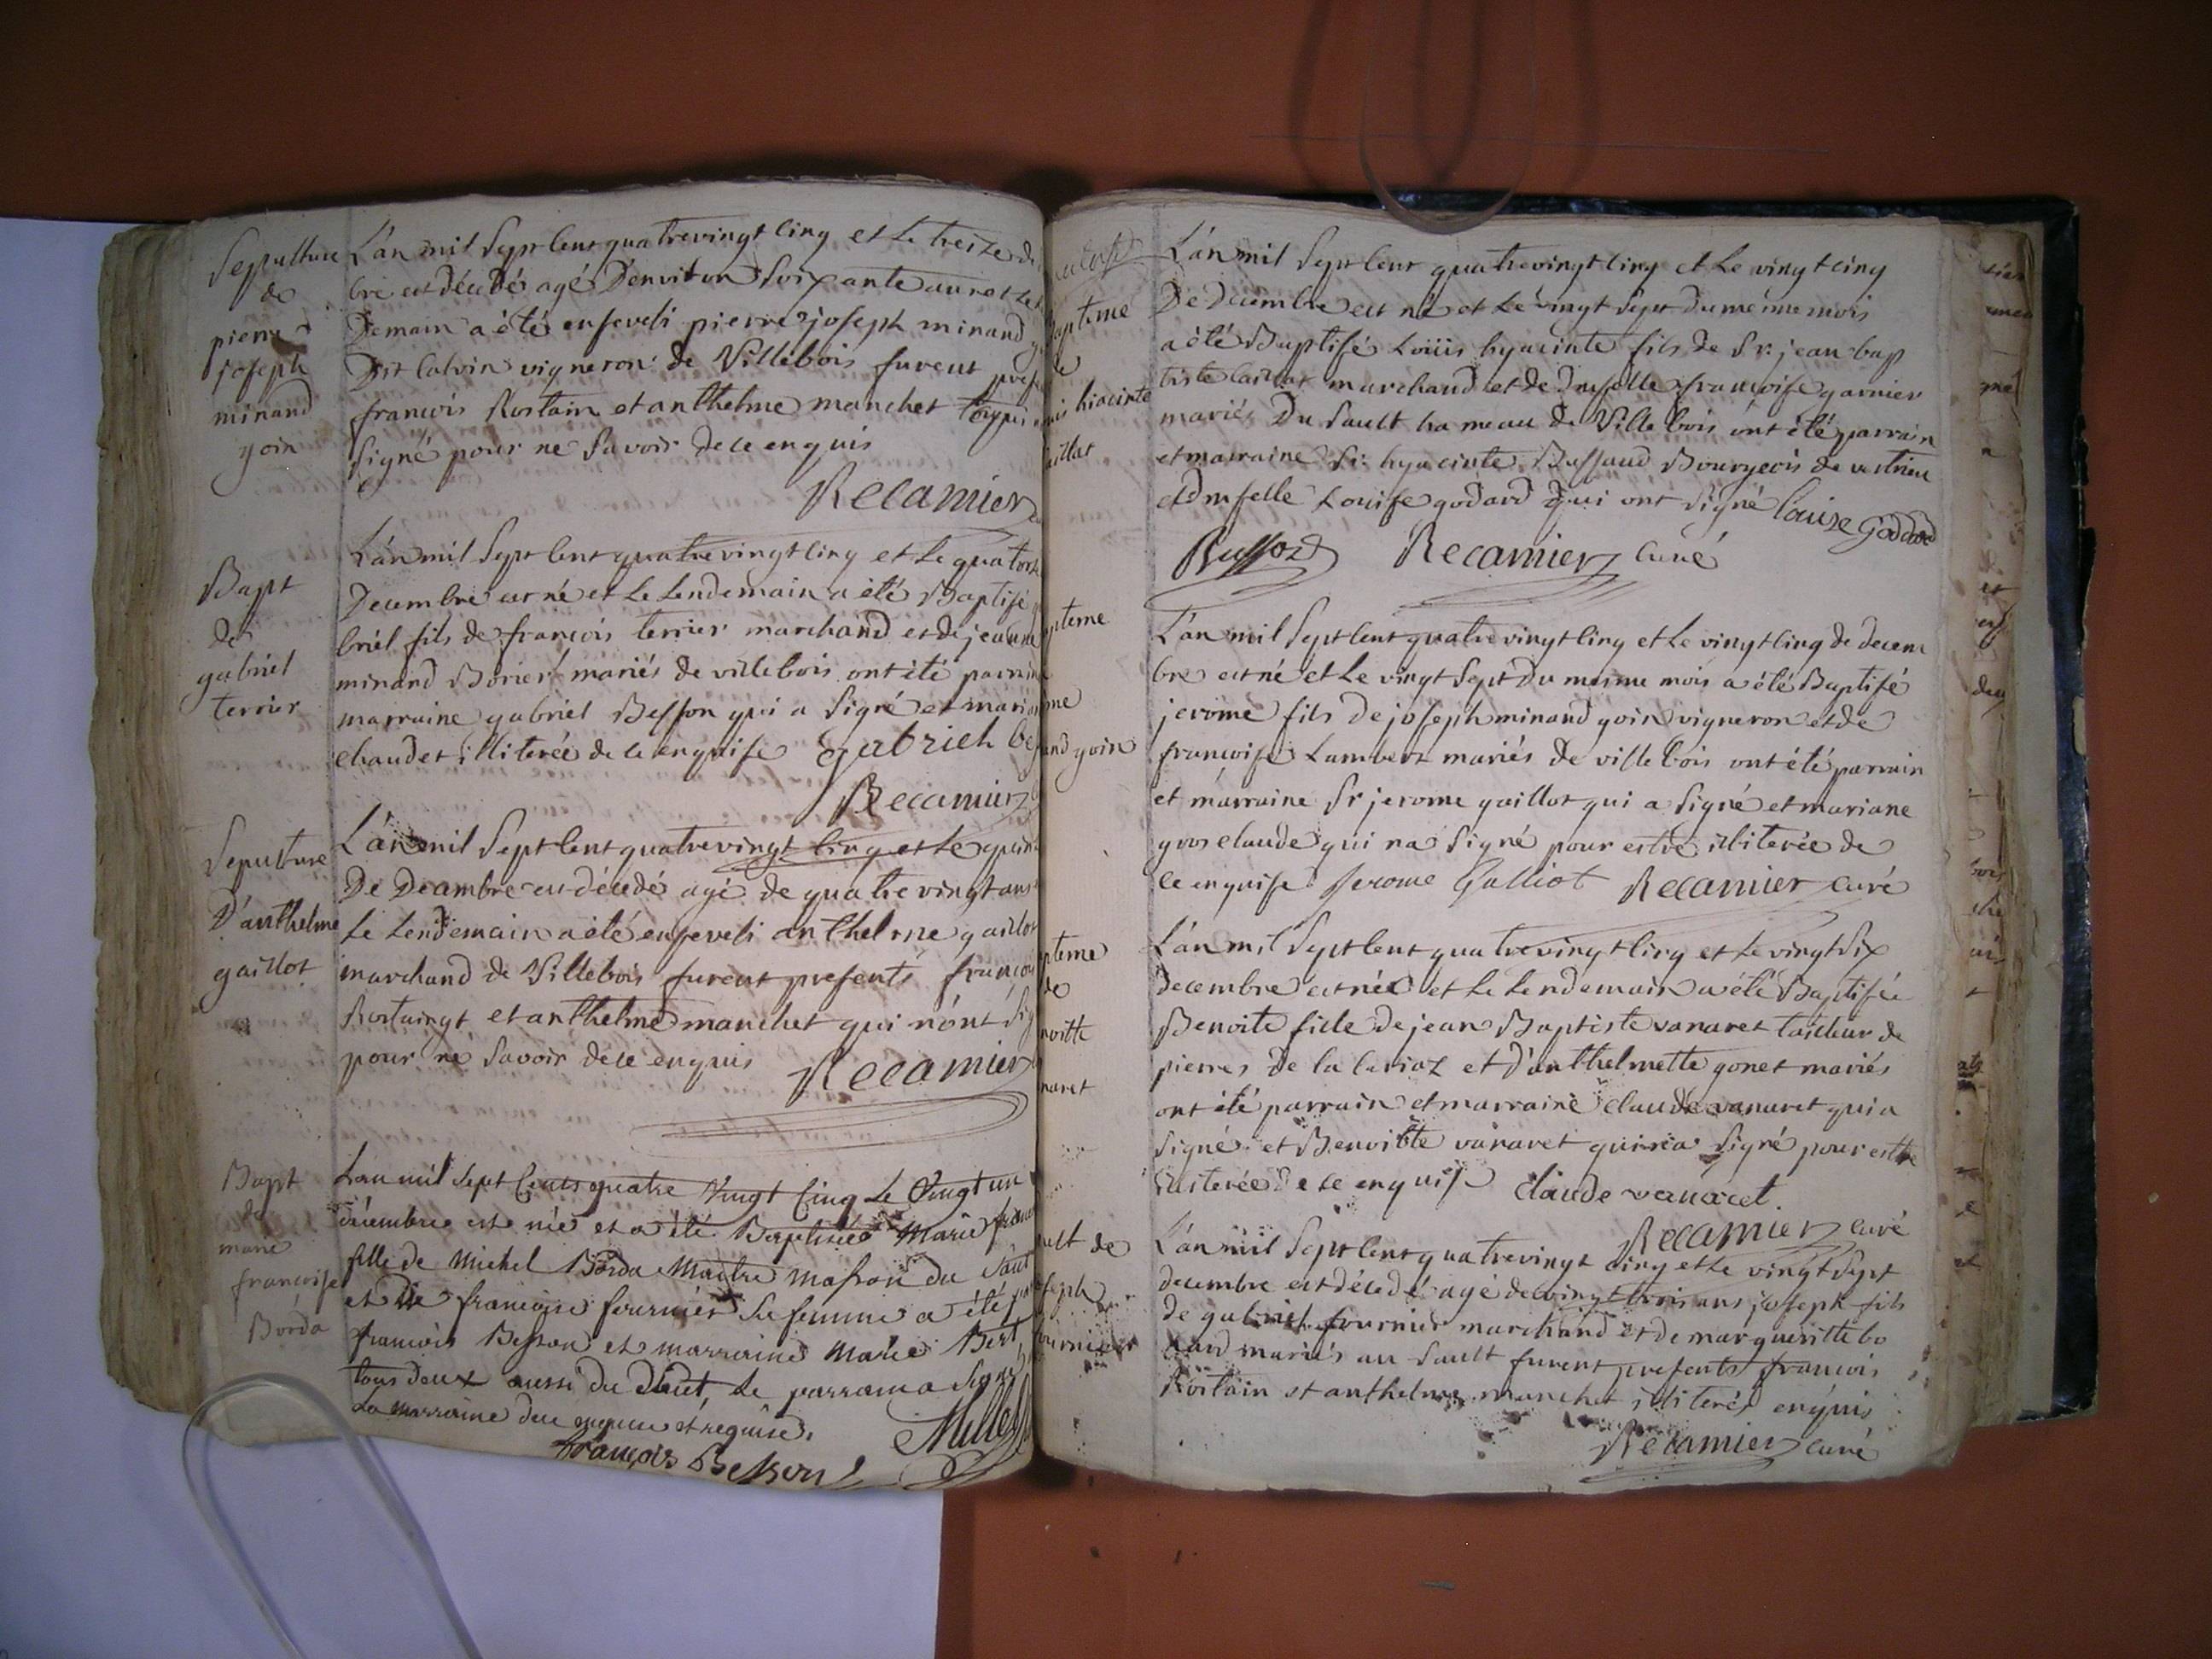 Sepulture
de
pierre
joseph
minand
goin
L'an mil Sept Cent quatrevingt cinq et le treize de
bre est décédé agé D'environ Soixante ans et le
Demain a été enseveli pierre joseph minand
Dit Calvin vigneron de Villebois furent
francois Rostain et anthelme manchet
Signé pour ne Savoir de ce enquis
Recamier
Bapt
de
gabriel
terrier
L'an mil Sept Cent quatrevingt cinq et le quatorz
Decembre est né et le Lendemain a été Baptisé
briel fils de francois terrier marchand et de jeanne
minand Borier mariés de villebois ont été parrain
marraine gabriel Besson qui a Signé et
chaudet illiterée de ce enquise gabrieh be
Recamier
Sepulture
D'anthelme
gaillot
L'an mil Sept Cent quatrevingt cinq et le
De Decembre est décédé agé de quatre vingt ans
Le Lendemain a été enseveli anthelme gaillot
marchand de Villebois furent presents francois
Rostaingt et anthelme manchet qui n'ont
pour ne Savoir de ce enquis Recamier
Bapt
de
marie
francoise
Borda
L'an mil Sept Cents quatre Vingt Cinq Le Vingt un
decembre est née et a été Baptisée Marie
fille de Michel Borda Maitre Masson du Saut
et de francoise fournier Sa femme a été
francois Besson et marraine Marie Bert
tous deux aussi du Saut, Le parrain a Signé
La marraine de ce enquise et requise.
francois Besson Millet
apteme
hiacinte
aillat
L'an mil Sept Cent quatrevingt cinq et Le vingt cinq
De Decembre est né et Le vingt Sept du meme mois
a été Baptisé Loüis hyacinte fils de Sr. jean bap
tiste Caillat marchand et de Dmselle francoise garnier
mariés Du Sault hameau de Villebois ont été parrain
et marraine Sr. hyacinte Buffaud Bourgeois de vertrieu
et Dmselle Louise godard qui ont Signé Louise Godard
Buffoz Recamier Curé
pteme
me
and goin
L'an mil Sept Cent quatrevingt cinq et Le vingt cinq de decem
bre est né et Le vingt Sept Du mesme mois a été Baptisé
jerome fils De joseph minand goin vigneron et de
francoise Lambert mariés de villebois ont été parrain
et marraine Sr jerome gaillot qui a Signé et mariane
gros claude qui na Signé pour estre illiterée de
ce enquise Jerome Galliot Recamier Curé
pteme
de
noitte
naret
L'an mil Sept Cent quatrevingt cinq et Le vingt Six
decembre est née et Le Lendemain a été Baptisée
Benoite fille de jean Baptiste vanaret tailleur de
pierres de la et d'anthelmette gonet mariés
ont été parrain et marraine claude vanaret qui a
Signé et Benoitte vanaret qui n'a Signé pour estre
illiterée de ce enquise Claude vanaret
Recamier Curé
ult de
seph
fournier
L'an mil Sept Cent quatrevingt cinq et Le vingt Sept
decembre est décédé agé de vingt trois ans joseph fils
de gabriel fournier marchand et de margueritte bo
mariés au Sault furent presents francois
Rostain et anthelme manchet illiterés enquis
Recamier Curé